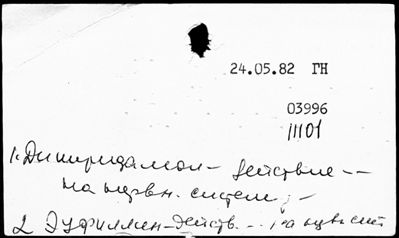 24.05.82 ГН
03996
11101
1. Дипиридамол - действие --
на нервн. систему; -
2. Эуфиллин - действ. -- на нервн. сист